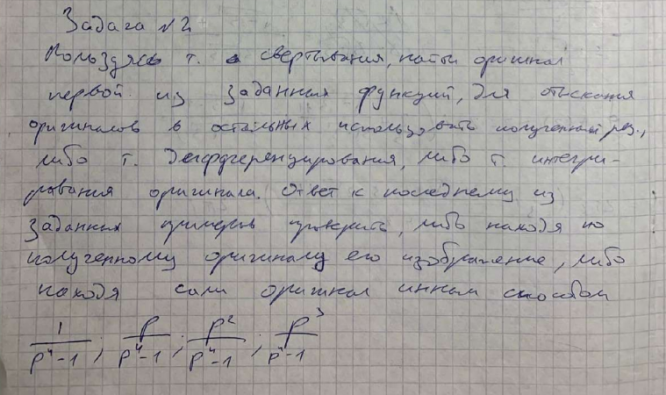 Задача №2
Пользуясь т. о свертывания, найти оригинал
первой из заданных функций, для отыскания
оригиналов в остальных использовать полученный рез.,
либо т. дифференцирования, либо т. интегри-
рования оригинала. Ответ к последнему из
заданных примеров проверить, либо находя по
полученному оригиналу его изображение, либо
находя сам оригинал иным способом
1/(p⁴-1); p/(p⁴-1); p²/(p⁴-1); p³/(p⁴-1)